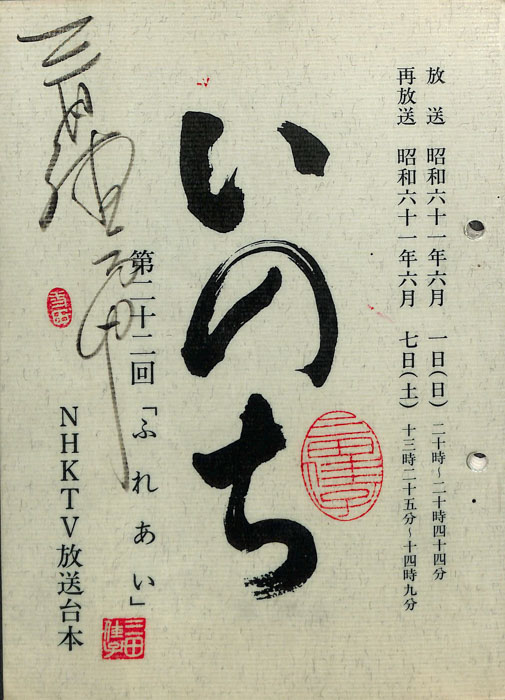 放送 昭和六十一年六月 一日(日) 二十時~二十時四十四分
再放送 昭和六十一年六月 七日(土) 十三時二十五分~十四時九分
いのち
第二十二回「ふれあい」
NHKTV放送台本
三田佳子